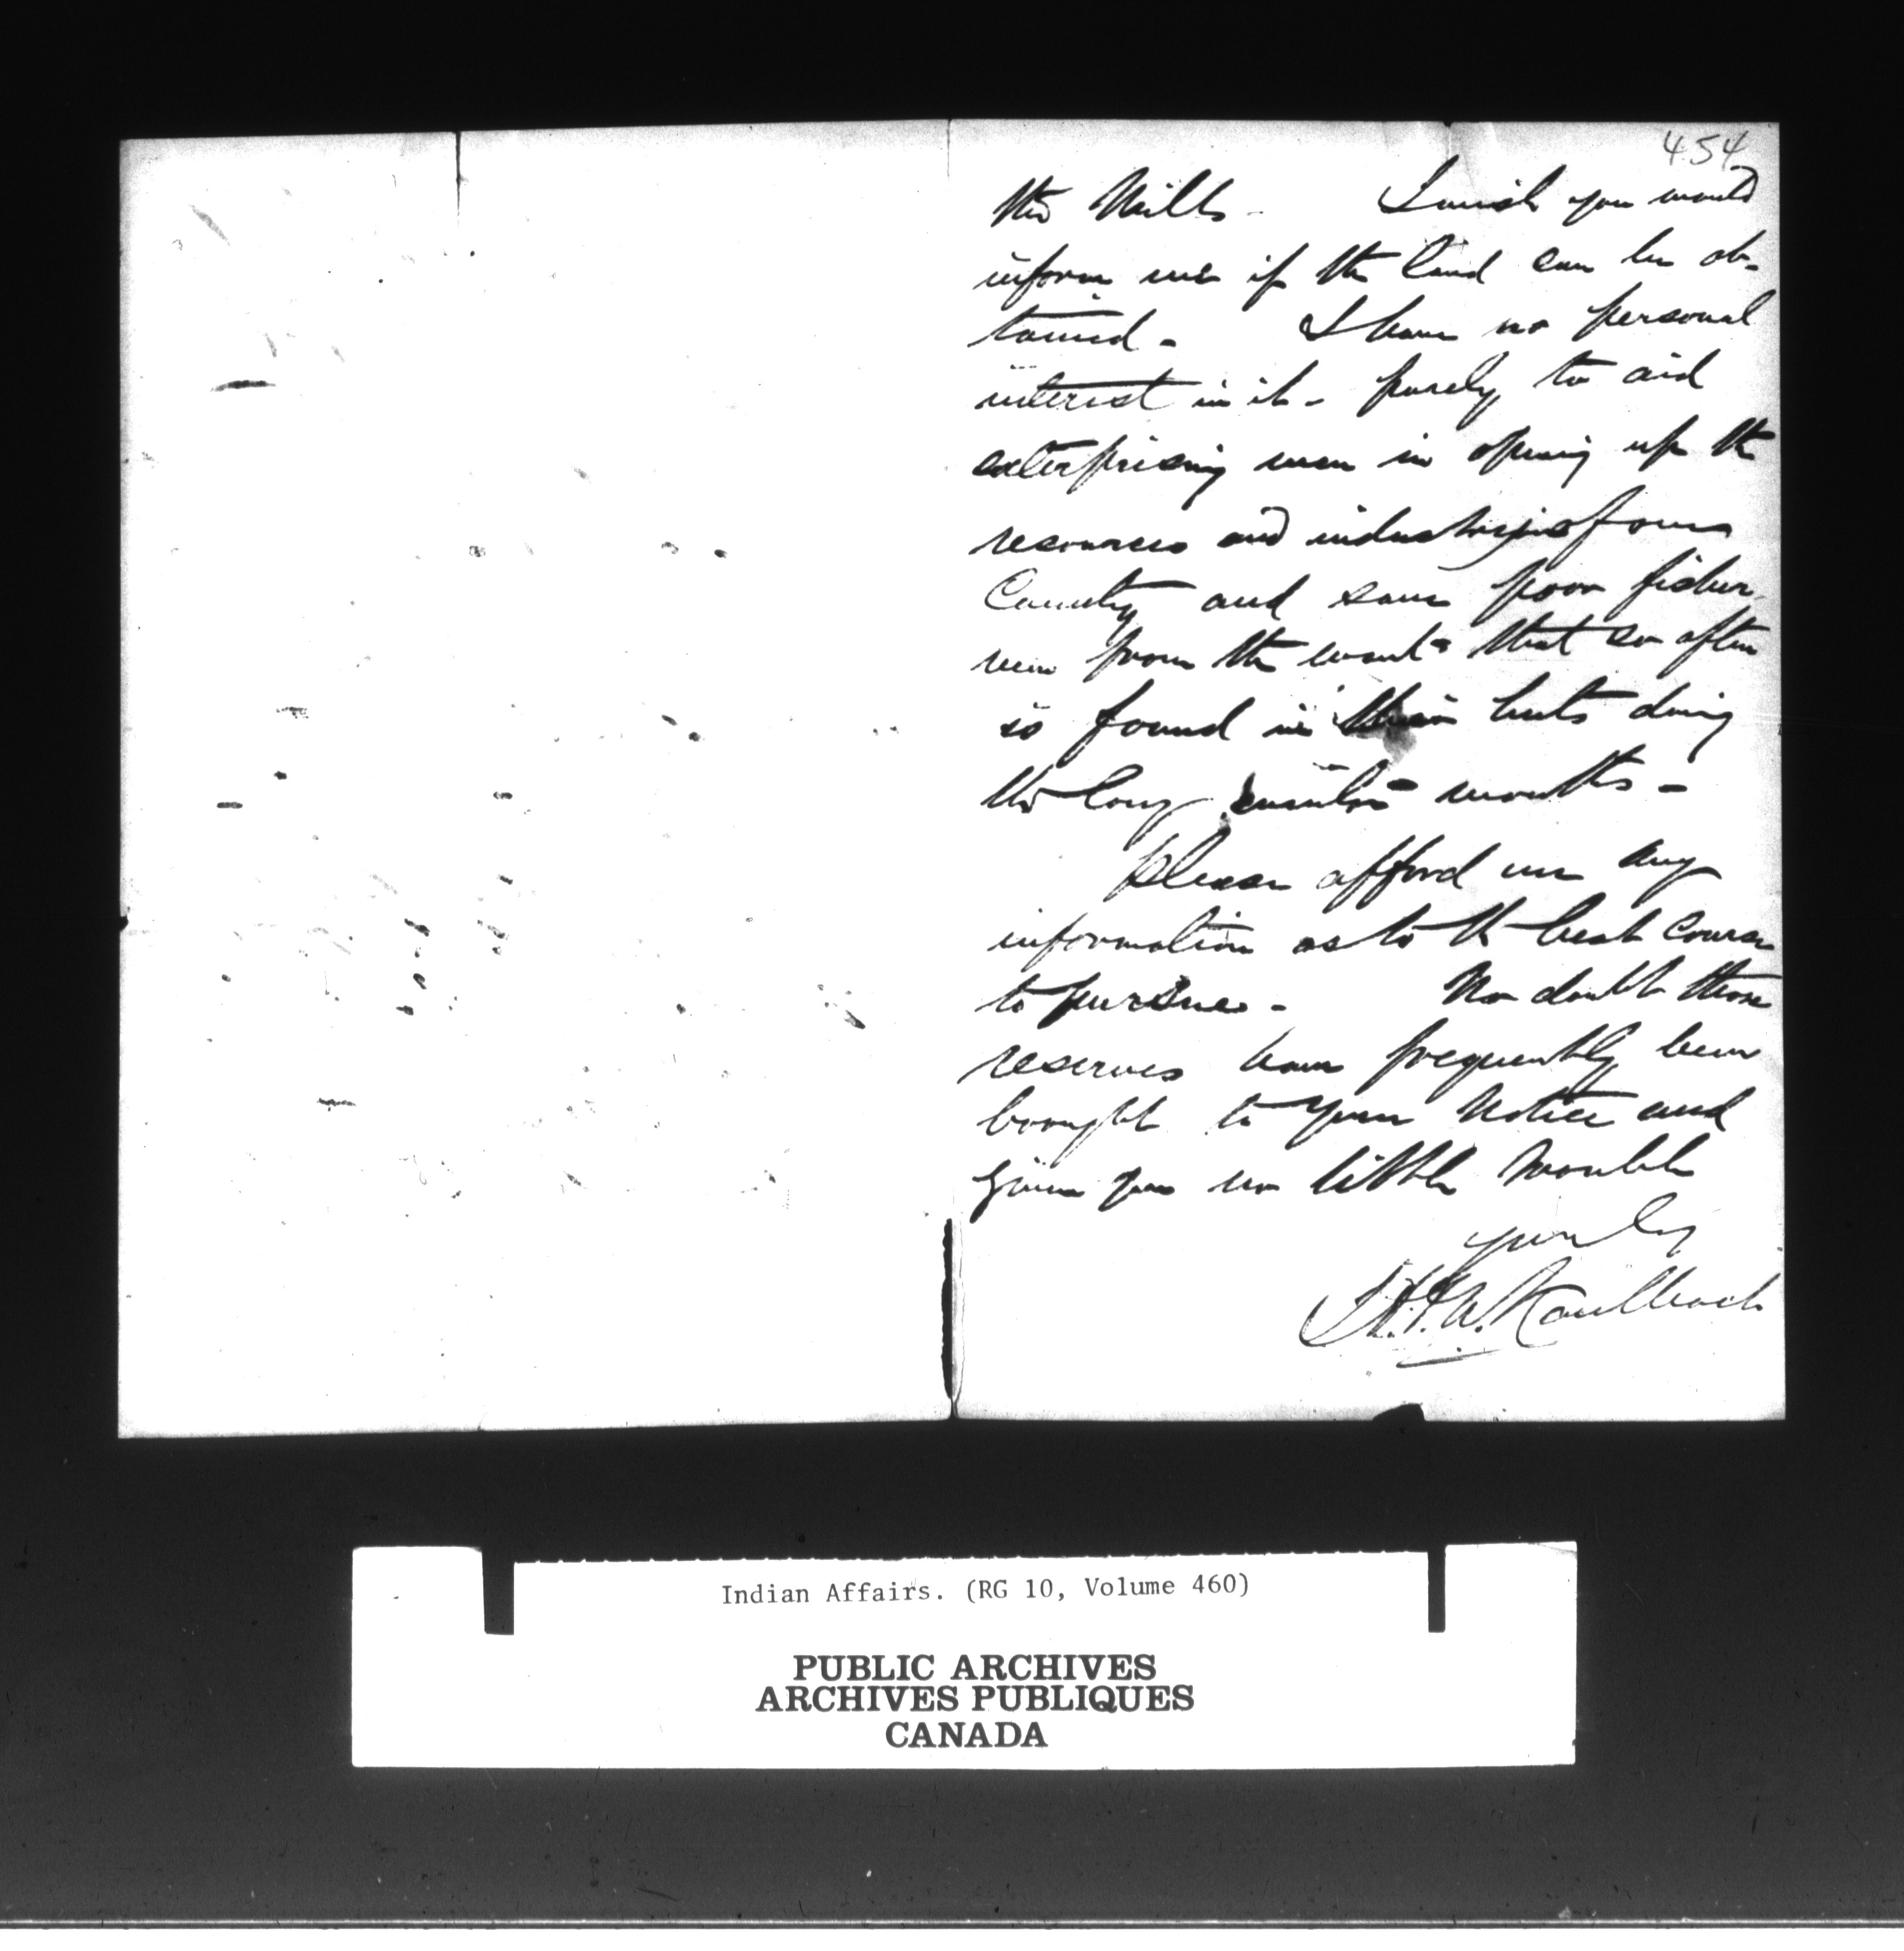 454
the Mills - I wish you would
inform me if the land can be ob-
tained - I have no personal
interest in it - purely to aid
enterprising men in opening up the
resources and industries of our
County and save poor fisher-
men from the want that so often
is found in their huts during
the long winter months -
Please afford me any
information as to the best course
to pursue - No doubt those
reserves have frequently been
brought to your notice and
given you no little trouble
yours ly
H.A.N. Kaulback
Indian Affairs. (RG 10, Volume 460)
PUBLIC ARCHIVES
ARCHIVES PUBLIQUES
CANADA